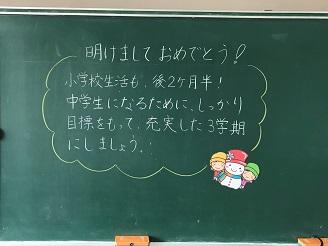 明けまして おめでとう!
小学校生活も、後2ヶ月半!
中学生になるために、しっかり
目標をもって、充実した3学期
にしましょう.!